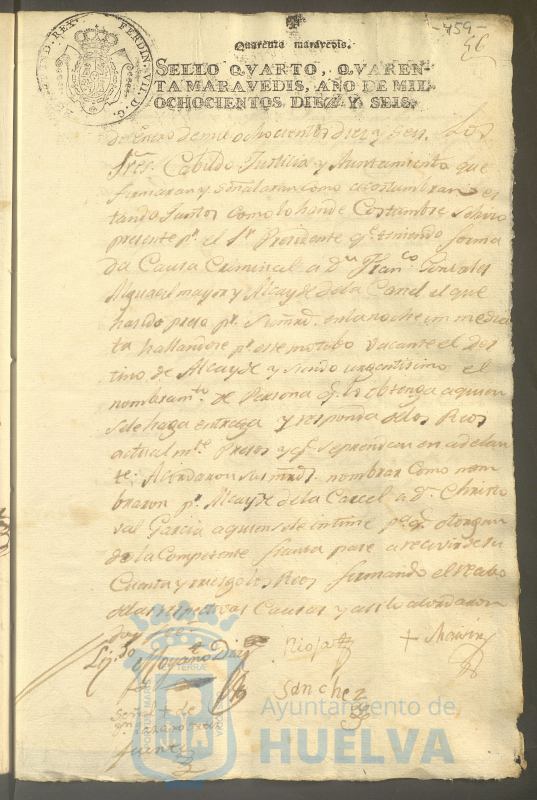 -459-
56
Quarenta maravedis.
SELLO QVARTO, QVAREN-
TA MARAVEDIS, AÑO DE MIL
OCHOCIENTOS DIEZ Y SEIS.
FERDIN. VII. D. G.
REX.
de Enero de mil ochocientos diez y seis. Los
Sres. Cabildo Justicia y Ayuntamiento que
firmaran y señalaran como acostumbran es
tando Juntos como lo han de Costumbre se hizo
presente pr. el Sr. Presidente qe. teniendo forma
da Causa Criminal a dn. Franco. Gonzales
Alguacil mayor y Alcayde de la Carcel el que
ha sido preso pr. su md. en la noche inmedia
ta hallandose pr. este motibo vacante el Des
tino de Alcayde y siendo urgentisimo el
nombramto. de Persona qe. lo obtenga a quien
se le haga entrega y responda de los Reos
actualmte. Presos y qe. se prendan en adelan
te: Acordaron sus mrds. nombrar como nom
braron pr. Alcayde de la Carcel a dn. Christo
val Garcia a quien se le intime pa. qe. otorgue
de la Competente fianza pase a recivir de su
Cuenta y riesgo los Reos firmando el recibo
de las respectivas Causas y asi lo acordaron
doy fee
Moyano Diaz
Rioja
+ Marin
Sanchez
Señal + de
fuentes
Ayuntamiento de
HUELVA